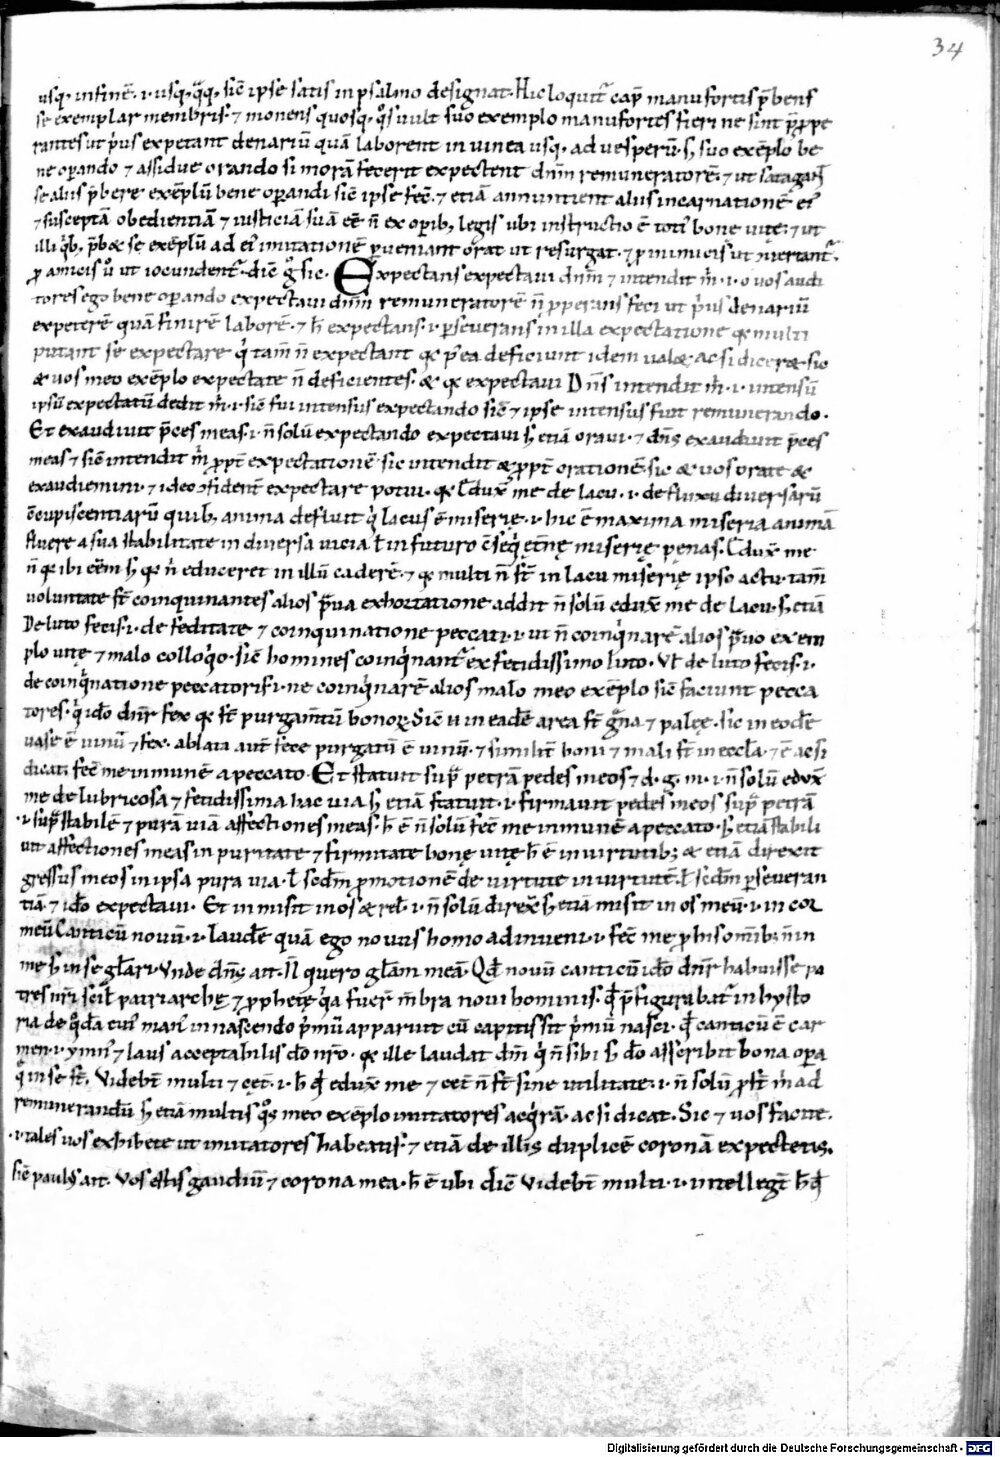 34
usq; infinē · i · usq; q̄q; sic̄ ipse satis in psalmo designat · Hic loquit᷑ cap̄ manufortis p̄bens
se exemplar membris · ⁊ monens quosq; q̊s uult suo exemplo manufortes fieri ne sint p̄ppe
rantes ut p᷑us expetant denariū quā laborent in uinea usq; ad uesperū · ꝫ suo exēplo be
ne oꝑando ⁊ assidue orando si morā fecerit expectent dn̄m remuneratorē · ⁊ ut satagaꝫ
se aliis p̄bere exēplū bene oꝑandi sic̄ ipse fec̄ · ⁊ etiā annuntient aliis incarnationē ei᷒
⁊ susceptā obedientiā ⁊ iusticiā suā eē n̄ ex oꝑib; legis ubi instructio ē toti᷒ bonę uitę · ⁊ ut
illi q᷑b; p̄bꝫ se exēplū ad ei᷒ imitationē ꝑueniant orat ut resurgat · ⁊ ꝓ inimicis ut ꝯuertant᷑ ·
ꝓ amicis ů ut iocundent᷑ · dic̄ g̊ sic · Expectans expectaui dn̄m ⁊ intendit m᷑ · i · o uos audi
tores ego bene oꝑando expectaui dn̄m remuneratorē n̄ ꝓperans feci ut p᷑us denariū
expeterē quā finirē laborē · ⁊ h̄ expectans · i · ꝑseuerans in illa expectatione qꝫ multi
putant se expectare q᷑ tam̄ n̄ expectant qꝫ p᷒ ea deficiunt idem ualꝫ ac si dicerꝫ · sic
& uos meo exēplo expectate n̄ deficientes · & qꝫ expectaui Dn̄s intendit m᷑ · i · intensū
ipsū expectatū dedit m᷑ · i · sic̄ fui intensus expectando sic̄ ⁊ ipse intensus fuit remunerando ·
Et exaudiuit p̄ces meas · i · n̄ solū expectando expectaui ꝫ etiā oraui · ⁊ dn̄s exaudiuit p̄ces
meas ⁊ sic̄ intendit m᷑ ꝓpt̄ expectationē · sic intendit & ꝓpt̄ orationē · sic & uos orate &
exaudiemini · ⁊ ideo ꝯfident̄ expectare potui · qꝫ Edux̄ me de lacu · i · de fluxu diuersarū
ꝯcupiscentiarū quib; anima defluit q᷑ lacus ē miserię · i · hic ē maxima miseria animā
fluere a sua stabilitate in diuersa uicia ł in futuro cōseq᷑ et̄nę miserię penas · Edux̄ me
n̄ qꝫ ibi eēm ꝫ qꝫ n̄ educeret in illū caderē · ⁊ qꝫ multi n̄ st̄ in lacu miserię ipso actu · tam̄
uoluntate st̄ coinquinantes alios p̄ua exhortatione addit n̄ solū edux̄ me de lacu · ꝫ etiā
De luto fecis · i · de feditate ⁊ coinquinatione peccati · i · ut n̄ coinq᷑narē alios p̄uo exem
plo uitę ⁊ malo colloq᷑o · sic̄ homines coinq᷑nant᷑ ex fetidissimo luto · Vł de luto fecis · i ·
de coinq᷑natione peccatoris · i · ne coinq᷑narē alios malo meo exēplo sic̄ faciunt pecca
tores · q᷑ ido dn̄r fex qꝫ st̄ purgam̄tū bonoꝝ · Sic̄ u in eadē area st̄ g̃na ⁊ palęe · sic in eodē
uase ē uinū ⁊ fex · ablata aut̄ fece purgatū ē uinū · ⁊ similit̄ boni ⁊ mali st̄ in eccła · ⁊ ē ac si
dicat · fec̄ me inmunē a peccato · Et statuit sup̃ petrā pedes meos ⁊ d · g · m · i · n̄ solū edux̄
me de lubricosa ⁊ fetidissima hac uia ꝫ etiam statuit · i · firmauit pedes meos sup̃ petrā
· i · sup̃ stabilē ⁊ purā uiā affectiones meas · h̄ ē n̄ solū fec̄ me inmunē a peccato · ꝫ etiā stabili
uit affectiones meas in puritate ⁊ firmitate bonę uitę h̄ ē in uirtutib; & etiā direxit
gressus meos in ipsa pura uia · ł scd̄m ꝓmotionē de uirtute in uirtutē · ł scd̄m ꝑseueran
tiā · ⁊ ido expectaui · Et inmisit in os & rel̄ · i · n̄ solū direx̄ ꝫ etiā misit in os meū · i · in cor
meū Canticū nouū · i · laudē quā ego nouus homo adinueni · i · fec̄ me ꝓ his om̄ib; n̄ in
me ꝫ in se głari · Vnde dn̄s ait · N̄ quero głam meā · Qd̄ nouū canticū ido dn̄r habuisse pa
tres nr̄i scił patriarchę ⁊ ꝓphetę q᷑a fuer̄ m̄bra noui hominis · q̄ p̄figurabat᷑ in hysto
ria de q̊da cui᷒ man᷒ in nascendo p᷑mū apparuit cū capitis sit p᷑mū nasci · qd̄ canticū ē car
men · i · ymn᷒ ⁊ laus acceptabilis do nr̄o · qꝫ ille laudat dm̄ q᷑ n̄ sibi ꝫ do asscribit bona oꝑa
q᷑ in se st̄ · Videbt̄ multi ⁊ cęt̄ · i · h̄ qd̄ edux̄ me ⁊ cet̄ n̄ st̄ sine utilitate · i · n̄ solū ꝓst̄ m᷑ ad
remunerandū ꝫ etiā multis q̊s meo exēplo imitatores acq᷑rā · ac si dicat · Sic ⁊ uos facite ·
· i · tales uos exhibete ut imitatores habeatis · ⁊ etiā de illis duplicē coronā expectetis ·
sic̄ paulꝰ ait · Vos estis gaudiū ⁊ corona mea · h̄ ē ubi dic̄ Videbt̄ multi · i · intellegt̄ h̄ qd̄
Digitalisierung gefördert durch die Deutsche Forschungsgemeinschaft - DFG